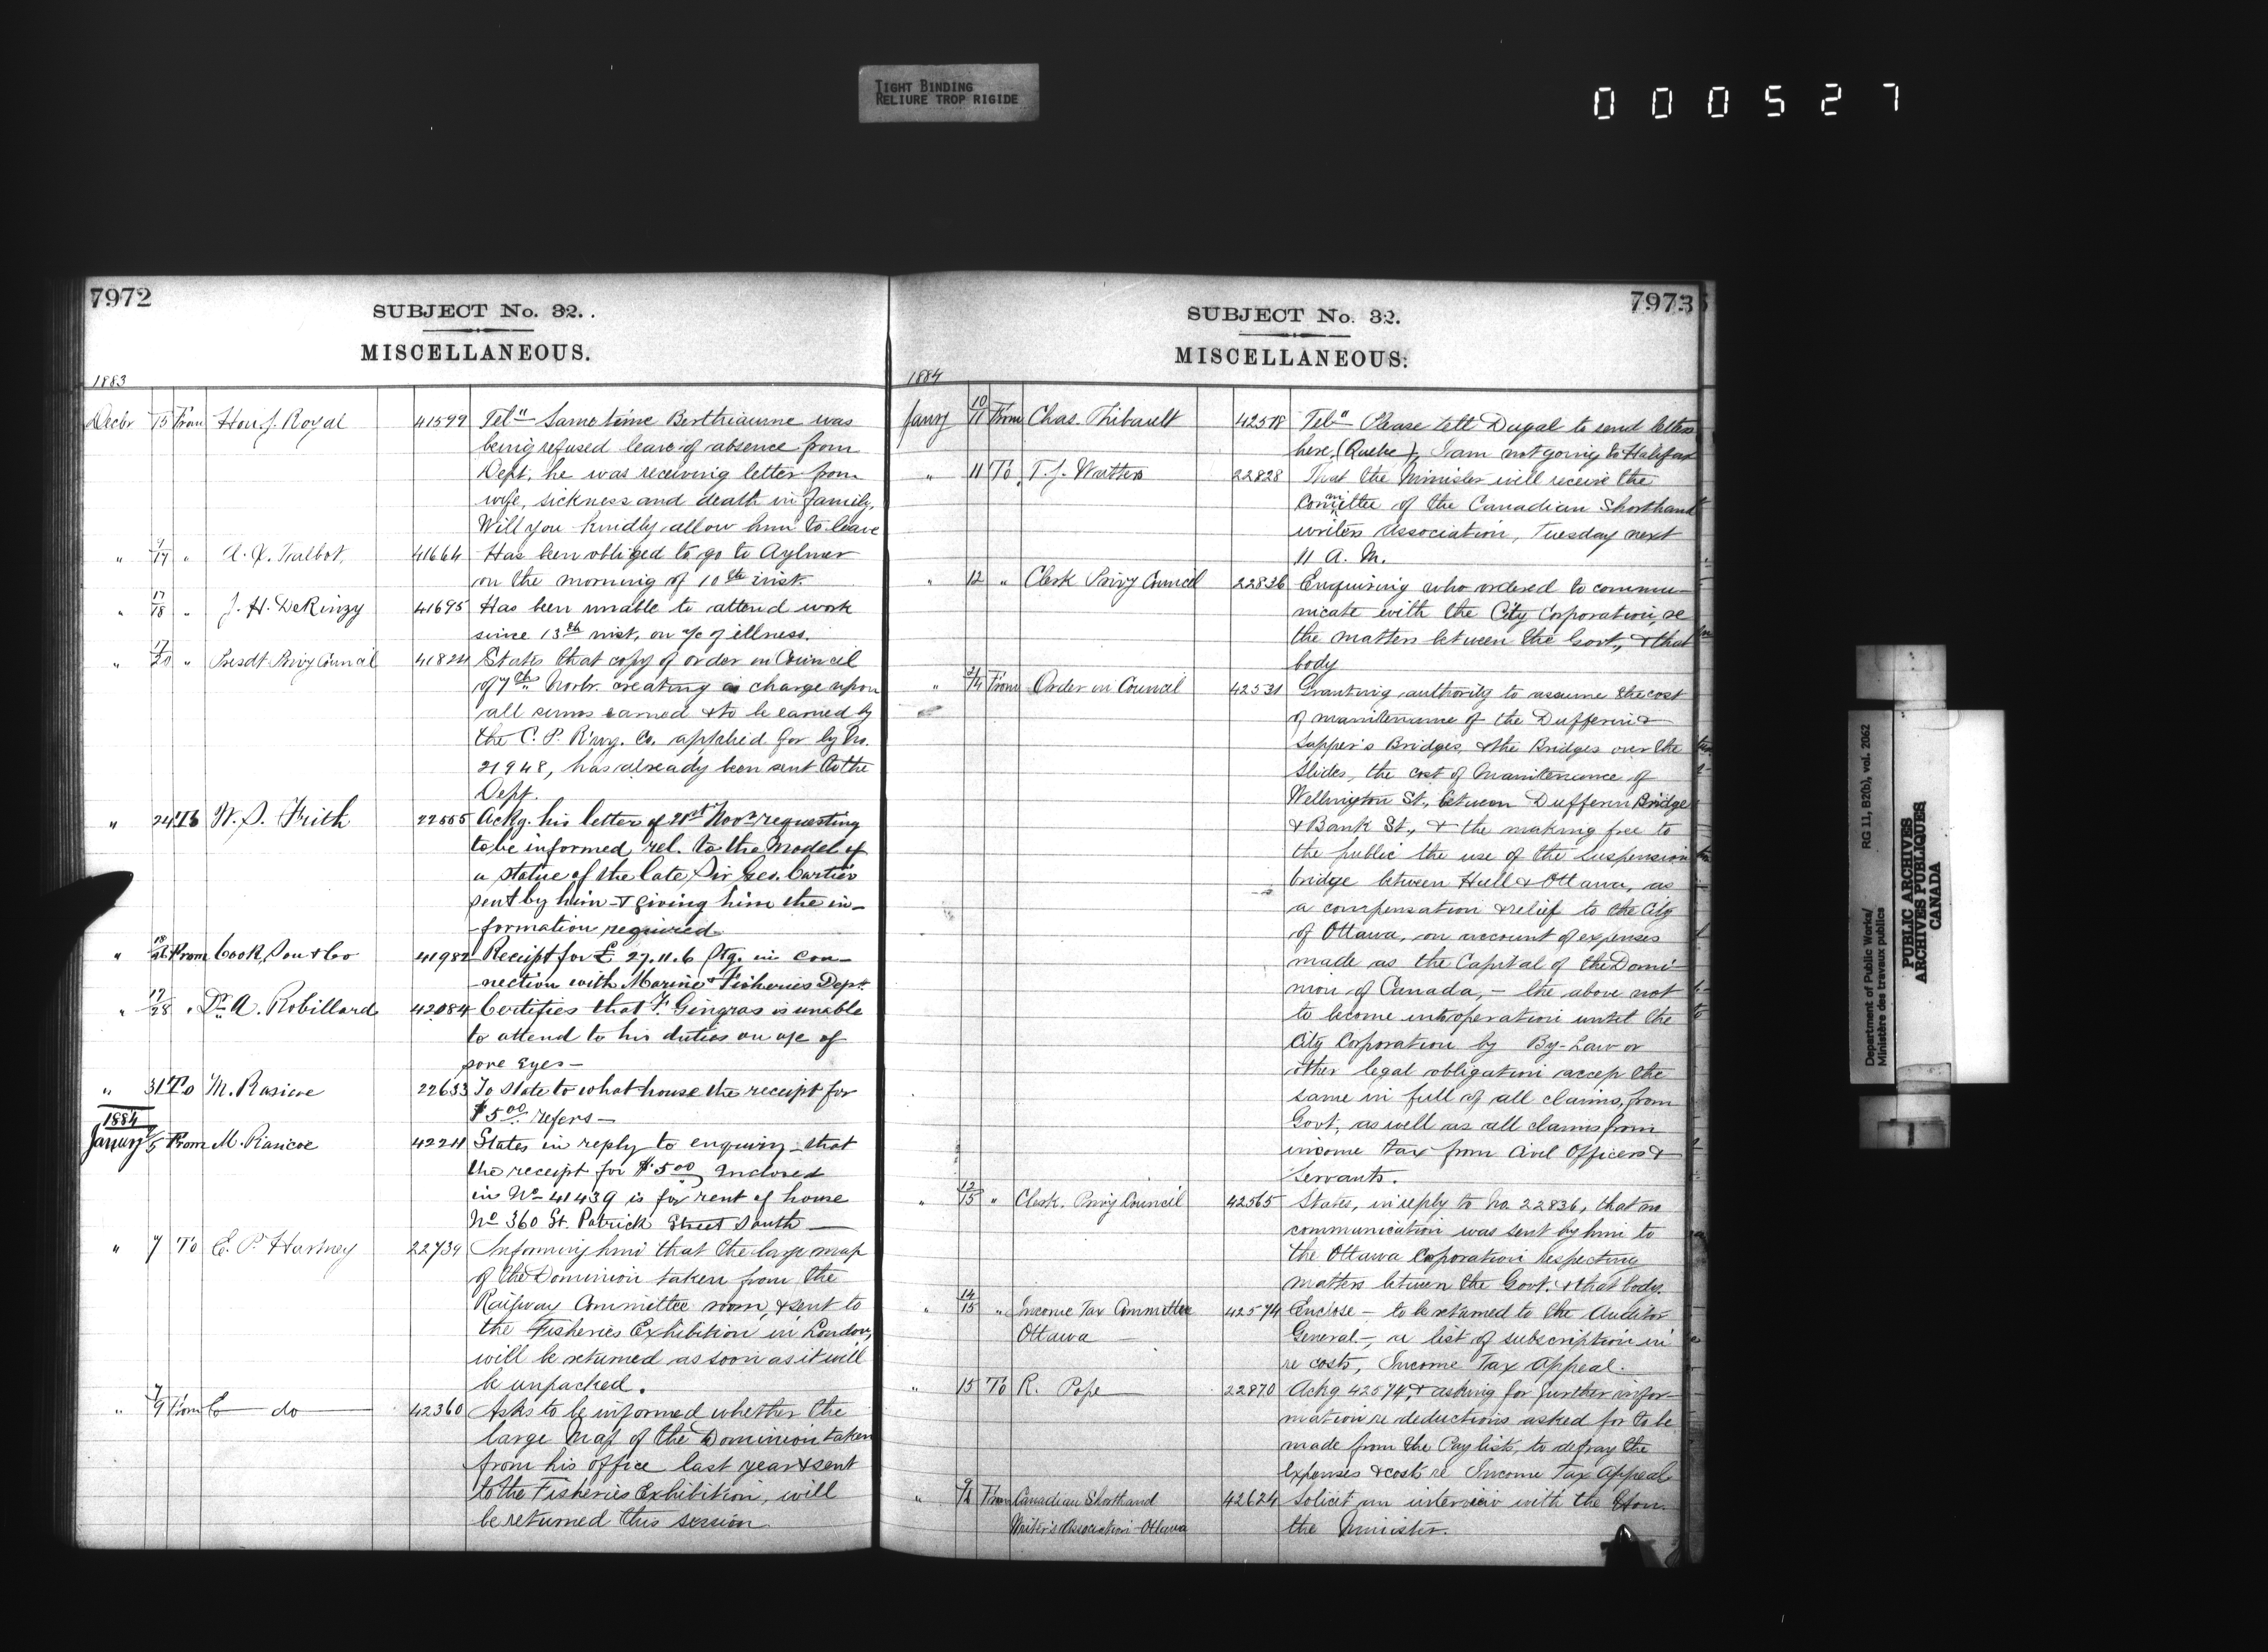 TIGHT BINDING
RELIURE TROP RIGIDE
000527
7972
SUBJECT No. 32.
MISCELLANEOUS.
1883
Decbr 15 From Hon. J. Royal 41599 Teln Same time Berthiaume was
being refused leave of absence from
Dept, he was receiving letter from
wife, sickness and death in family,
Will you kindly allow him to leave
" 17 " A. X. Talbot, 41664 Has been obliged to go to Aylmer
on the morning of 10th inst.
" 17/18 " J. H. DeRinzy 41695 Has been unable to attend work
since 13th inst, on a/c of illness.
" 17/20 " Presdt Privy Council 41824 States that copy of order in Council
of 7th Novbr. creating a charge upon
all sums earned & to be earned by
the C. P. R'wy. Co. applied for by No.
21948, has already been sent to the
Dept.
" 24 To W. S. Frith 22555 Ackg. his letter of 21st Novr requesting
to be informed rel. to the model of
a statue of the late Sir Geo. Cartier
sent by him & giving him the in-
formation required
" From Cook, Son & Co 41982 Receipt for £ 27.11.6 Stg. in con-
nection with Marine & Fisheries Dept.
" 17/28 " Dr A. Robillard 42084 Certifies that F. Gingras is unable
to attend to his duties on a/c of
sore eyes-
" 31 To M. Rasicoe 22633 To state to what house the receipt for
$5 00 refers-
1884
January 5 From M. Rancoe 42211 States in reply to enquiry - that
the receipt for $5 00 enclosed
in No 41439 is for rent of house
No 360 St. Patrick Street South-
" 7 To E. P. Hartney 22739 Informing him that the large map
of the Dominion taken from the
Railway Committee room, & sent to
the Fisheries Exhibition in London,
will be returned as soon as it will
be unpacked.
" 7/9 From do 42360 Asks to be informed whether the
large Map of the Dominion taken
from his office last year & sent
to the Fisheries Exhibition, will
be returned this session
7973
SUBJECT No. 32.
MISCELLANEOUS.
1884
Jany 10/11 From Chas. Thibault 42518 Teln Please tell Dugal to send letters
here, (Quebec), I am not going to Halifax
" 11 To T. J. Watters 22828 That the Minister will receive the
Committee of the Canadian Shorthand
writers Association, Tuesday next
11 A. M.
" 12 " Clerk Privy Council 22836 Enquiring who ordered to commu-
nicate with the City Corporation, re
the matters between the Govt, & that
body
" 14 From Order in Council 42531 Granting authority to assume the cost
of maintenance of the Dufferin &
Sapper's Bridges, & the Bridges over the
Slides, the cost of Maintenance of
Wellington St., between Dufferin Bridge
& Bank St., & the making free to
the public the use of the Suspension
bridge between Hull & Ottawa, as
a compensation & relief to the City
of Ottawa, on account of expenses
made as the Capital of the Domi-
nion of Canada, - the above not
to become into operation until the
City Corporation by By-Law or
other legal obligation accep the
same in full of all claims, from
Govt, as well as all claims from
income tax from Civil Officers &
Servants.
" 12/15 " Clerk. Privy Council 42565 States, in reply to No. 22836, that no
communication was sent by him to
the Ottawa Corporation respecting
matters between the Govt. & that body.
" 14/15 " Income Tax Committee 42574 Enclose - to be returned to the Auditor
Ottawa - General -, a list of subscription in
re costs, Income Tax Appeal.
" 15 To R. Pope 22870 Ackg 42574, & asking for further infor-
mation re deductions asked for to be
made from the Pay lists, to defray the
expenses & costs re Income Tax Appeal
" From Canadian Shorthand 42624 Solicit an interview with the Hon.
Writer's Association - Ottawa the Minister.
Department of Public Works/
Ministère des travaux publics
RG 11, B2(b), vol. 2062
PUBLIC ARCHIVES
ARCHIVES PUBLIQUES
CANADA